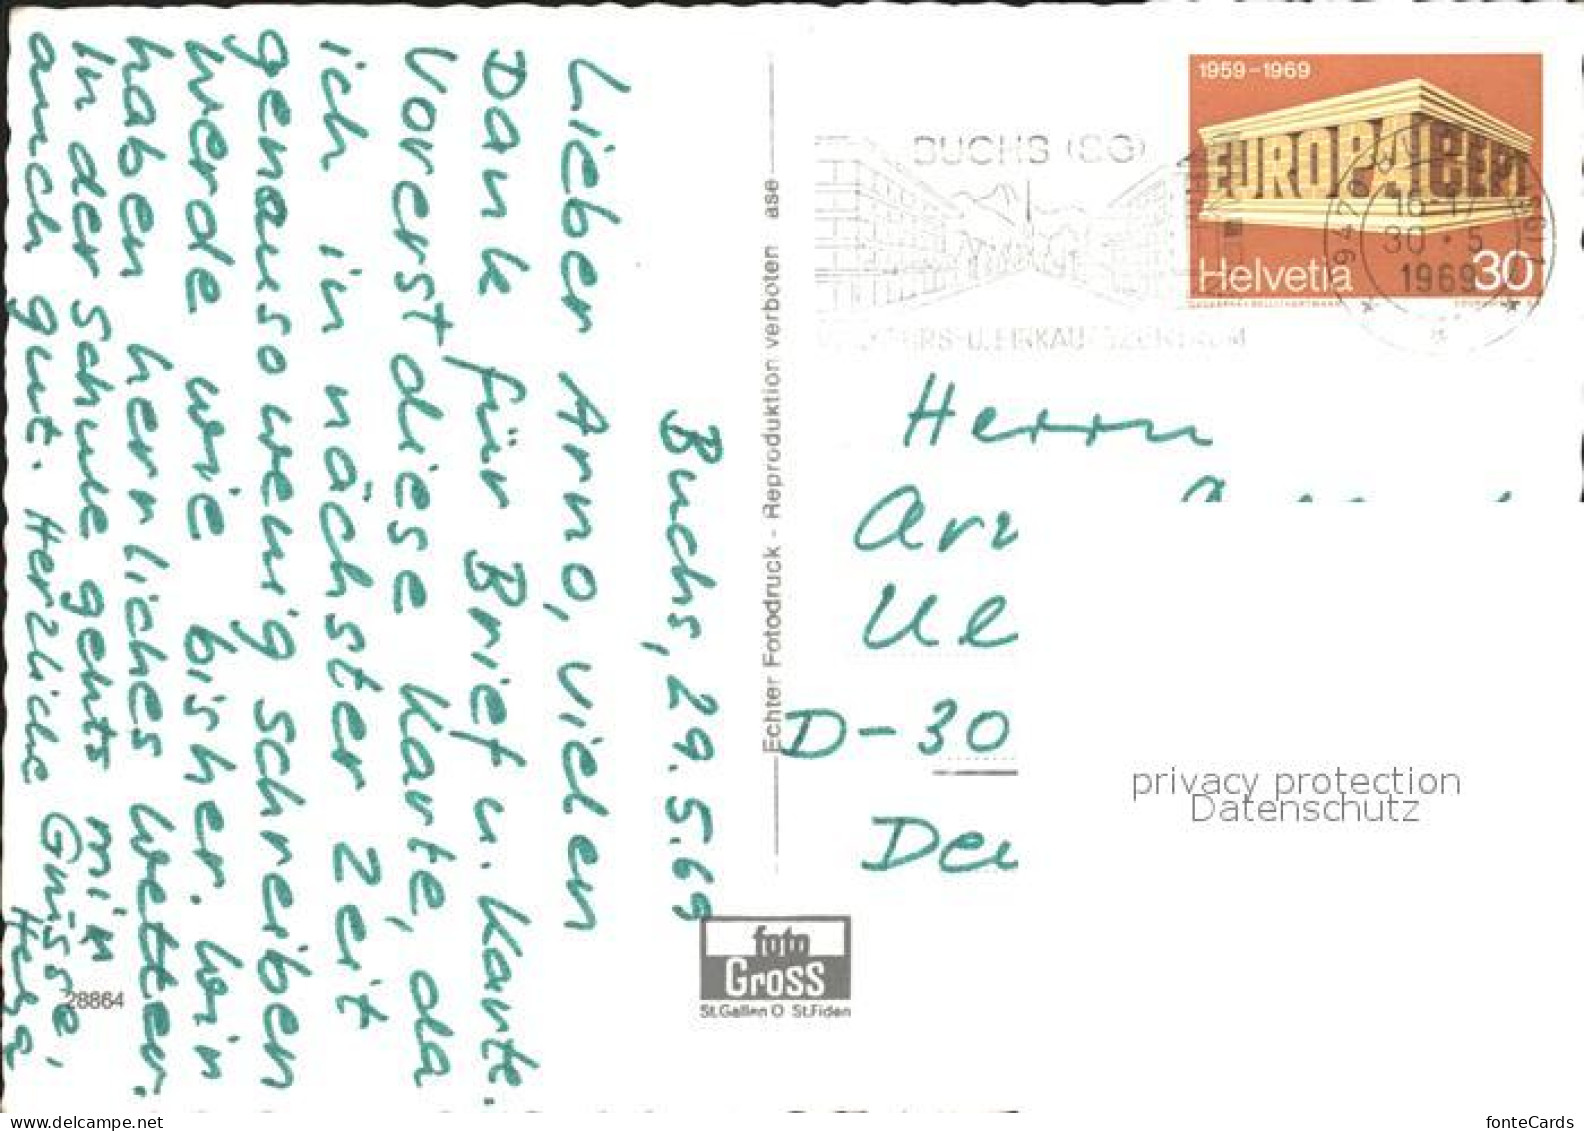 Buchs, 29.5.69
Lieber Arno, vielen
Dank für Brief u. Karte.
Vorerst diese Karte, da
ich in nächster Zeit
genauso wenig schreiben
werde wie bisher. Wir
haben herrliches Wetter.
In der Schule gehts mir
auch gut. Herzliche Grüsse,
28864
Echter Fotodruck - Reproduktion verboten ase
foto
Gross
St.Gallen O St.Fiden
BUCHS (SG)
1959-1969
EUROPA CEPT
Helvetia 30
16-17
30.5
1969
Herrn
D-30
privacy protection
Datenschutz
delcampe.net
fonteCards